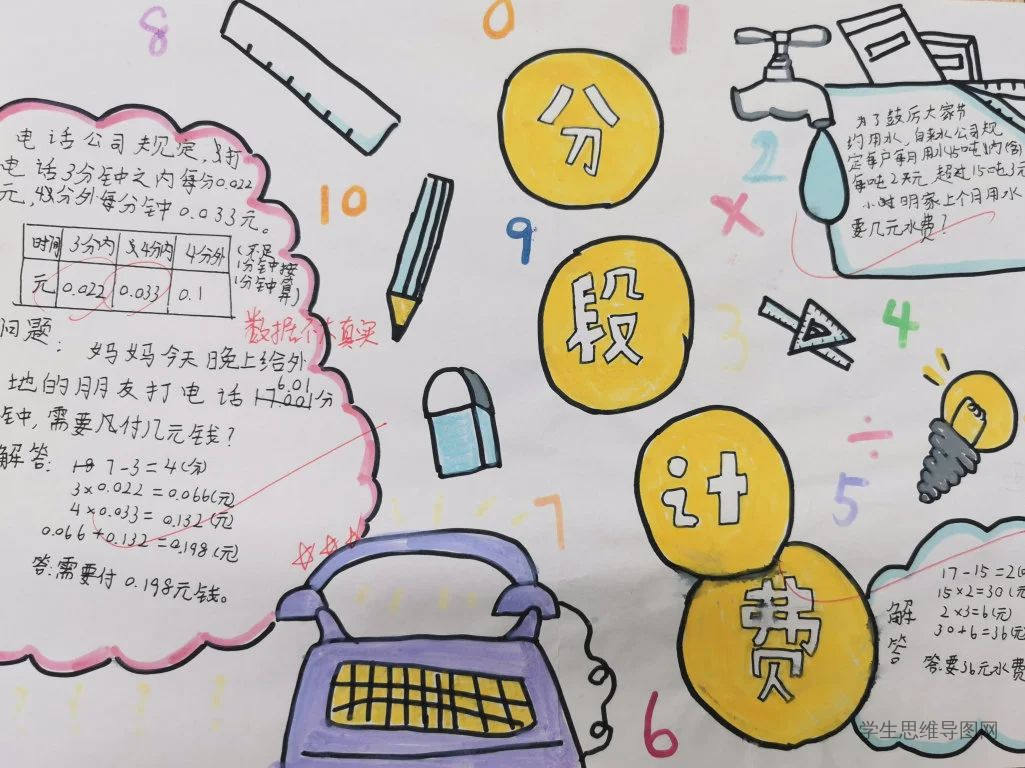 8
0
1
分
段
计
费
电话公司规定,打
电话3分钟之内每分0.022
元,4分外每分钟0.033元。
时间 3分内 4分内 4分外
元 0.022 0.033 0.1
(不足
1分钟按
1分钟算)
数据不真实
问题:妈妈今天晚上给外
地的朋友打电话 6.01分
钟,需要付几元钱?
解答: 7-3=4(分)
3×0.022=0.066(元)
4×0.033=0.132(元)
0.066+0.132=0.198(元)
答:需要付0.198元钱。
10
9
2
×
3
4
÷
5
7
6
为了鼓励大家节
约用水,自来水公司规
定每户每月用水15吨以内(含)
每吨2元,超过15吨3元
小明家上个月用水
要几元水费?
解答
17-15=2
15×2=30(元
2×3=6(元)
30+6=36(元
答:要36元水费
学生思维导图网